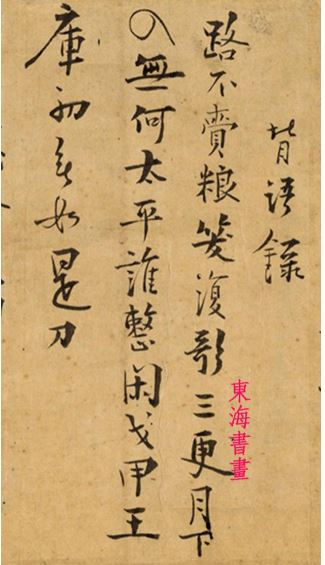 背語錄
路不賷粮笑復歌三更月下
入無何太平誰整閑戈甲王
庫初無如是刀
東海書畫